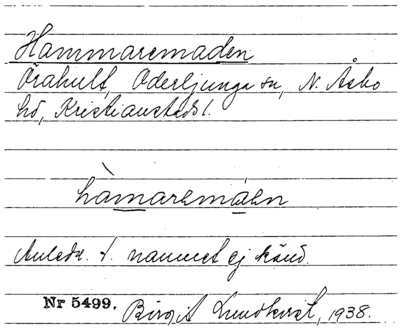 Hammaremaden
Örahult, Oderljunga sn, N. Åsbo
hd, Kristianstads l.
hàmaremáen
Anledn. t. namnet ej känd.
Nr 5499. Birgit Lundkvist, 1938.